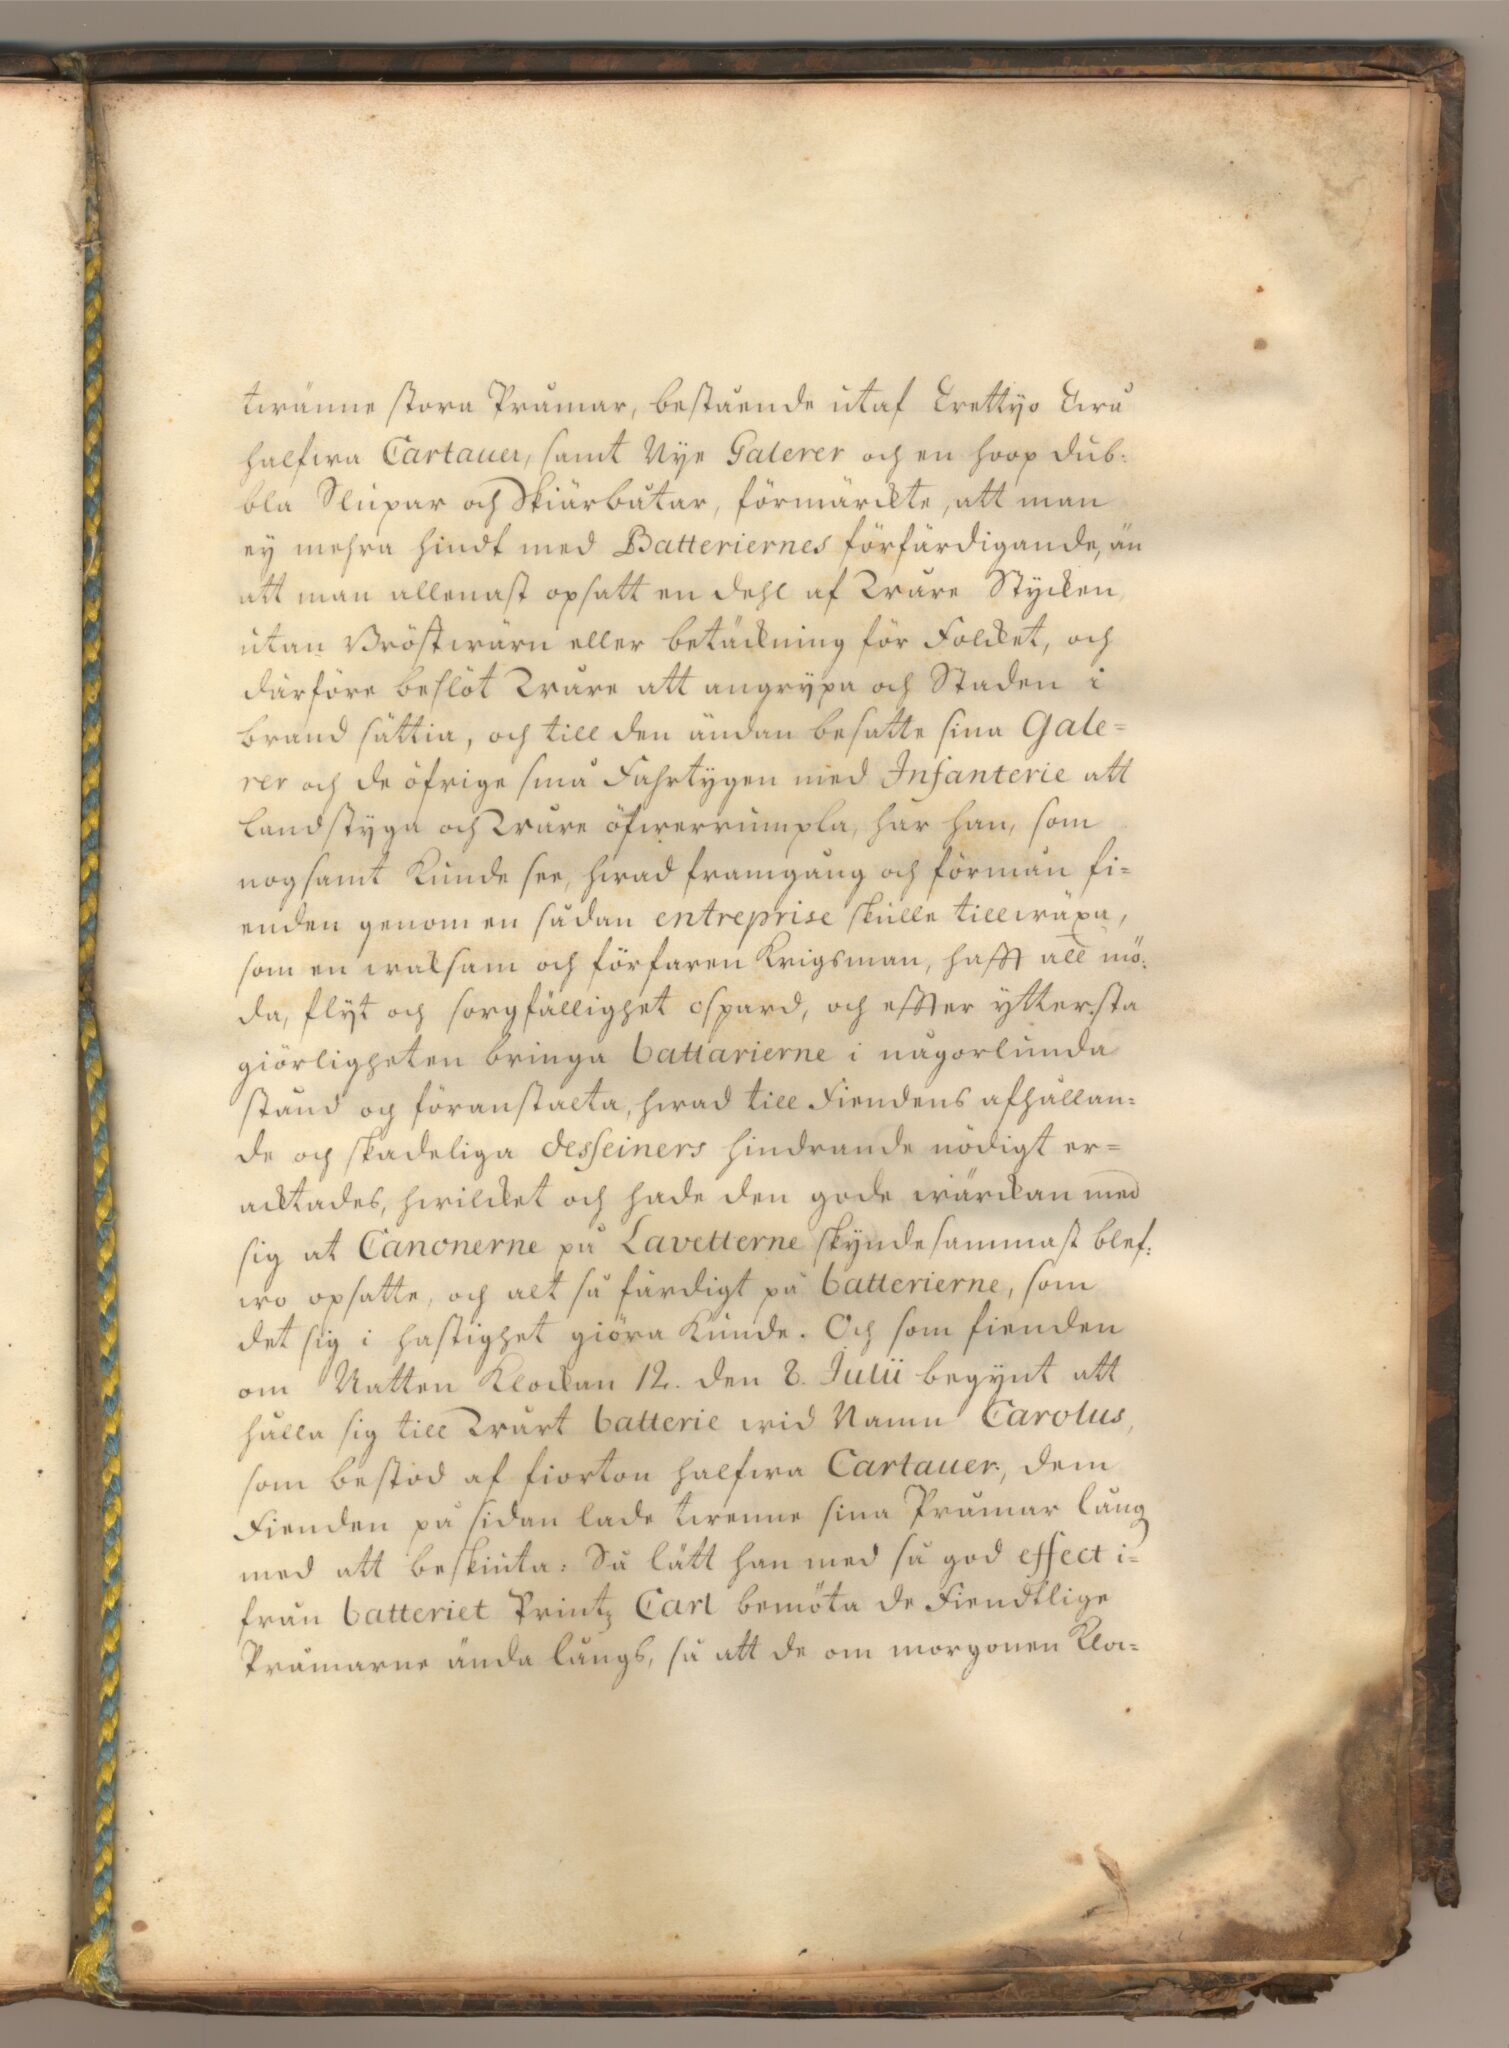 twänne stora Pråmar, bestående utaf Trettyo Twå
halfwa Cartauer, samt Nye Galerer och en hoop dub-
bla Slupar och Skiärbåtar, förmärckte, att man
ey mehra hindt med Batteriernes förfärdigande, än
att man allenast opsatt en dehl af Wåre Stycken
utan Bröstwärn eller betäckning för Folcket, och
därföre beslöt Wåre att angrypa och Staden i
brand sättia, och till den ändan besatte sina Gale-
rer och de öfrige små Fahrtygen med Infanterie att
landstyga och Wåre öfwerrumpla, har han, som
nogsamt Kunde see, hwad framgång och förmån fi-
enden genom en sådan entreprise skulle tillwäxa,
som en waksam och förfaren Krigsman, hafft all mö-
da, flyt och sorgfällighet ospard, och effter yttersta
giörligheten bringa battarierne i någorlunda
stånd og föranstalta, hwad till Fiendens afhållan-
de og skadeliga desseiners hindrande nödigt er-
acktades, hwilcket och hade den gode wärckan med
sig at Canonerne på Lavetterne skyndesammast blef-
wo opsatte, och alt så färdigt på batterierne, som
det sig i hastighet giöra Kunde. Och som fienden
om Natten Klockan 12. den 8. Julii begynt att
hålla sig till Wårt batterie wid Namn Carolus,
som bestod af fiorton halfwa Cartauer, dem
Fienden på sidan lade twenne sina Pråmar lång
med att beskiuta: Så lätt han med så god effect i-
från batteriet Printz Carl bemöta de Fiendtlige
Pråmarne ända långs, så att de om morgonen Kloc-